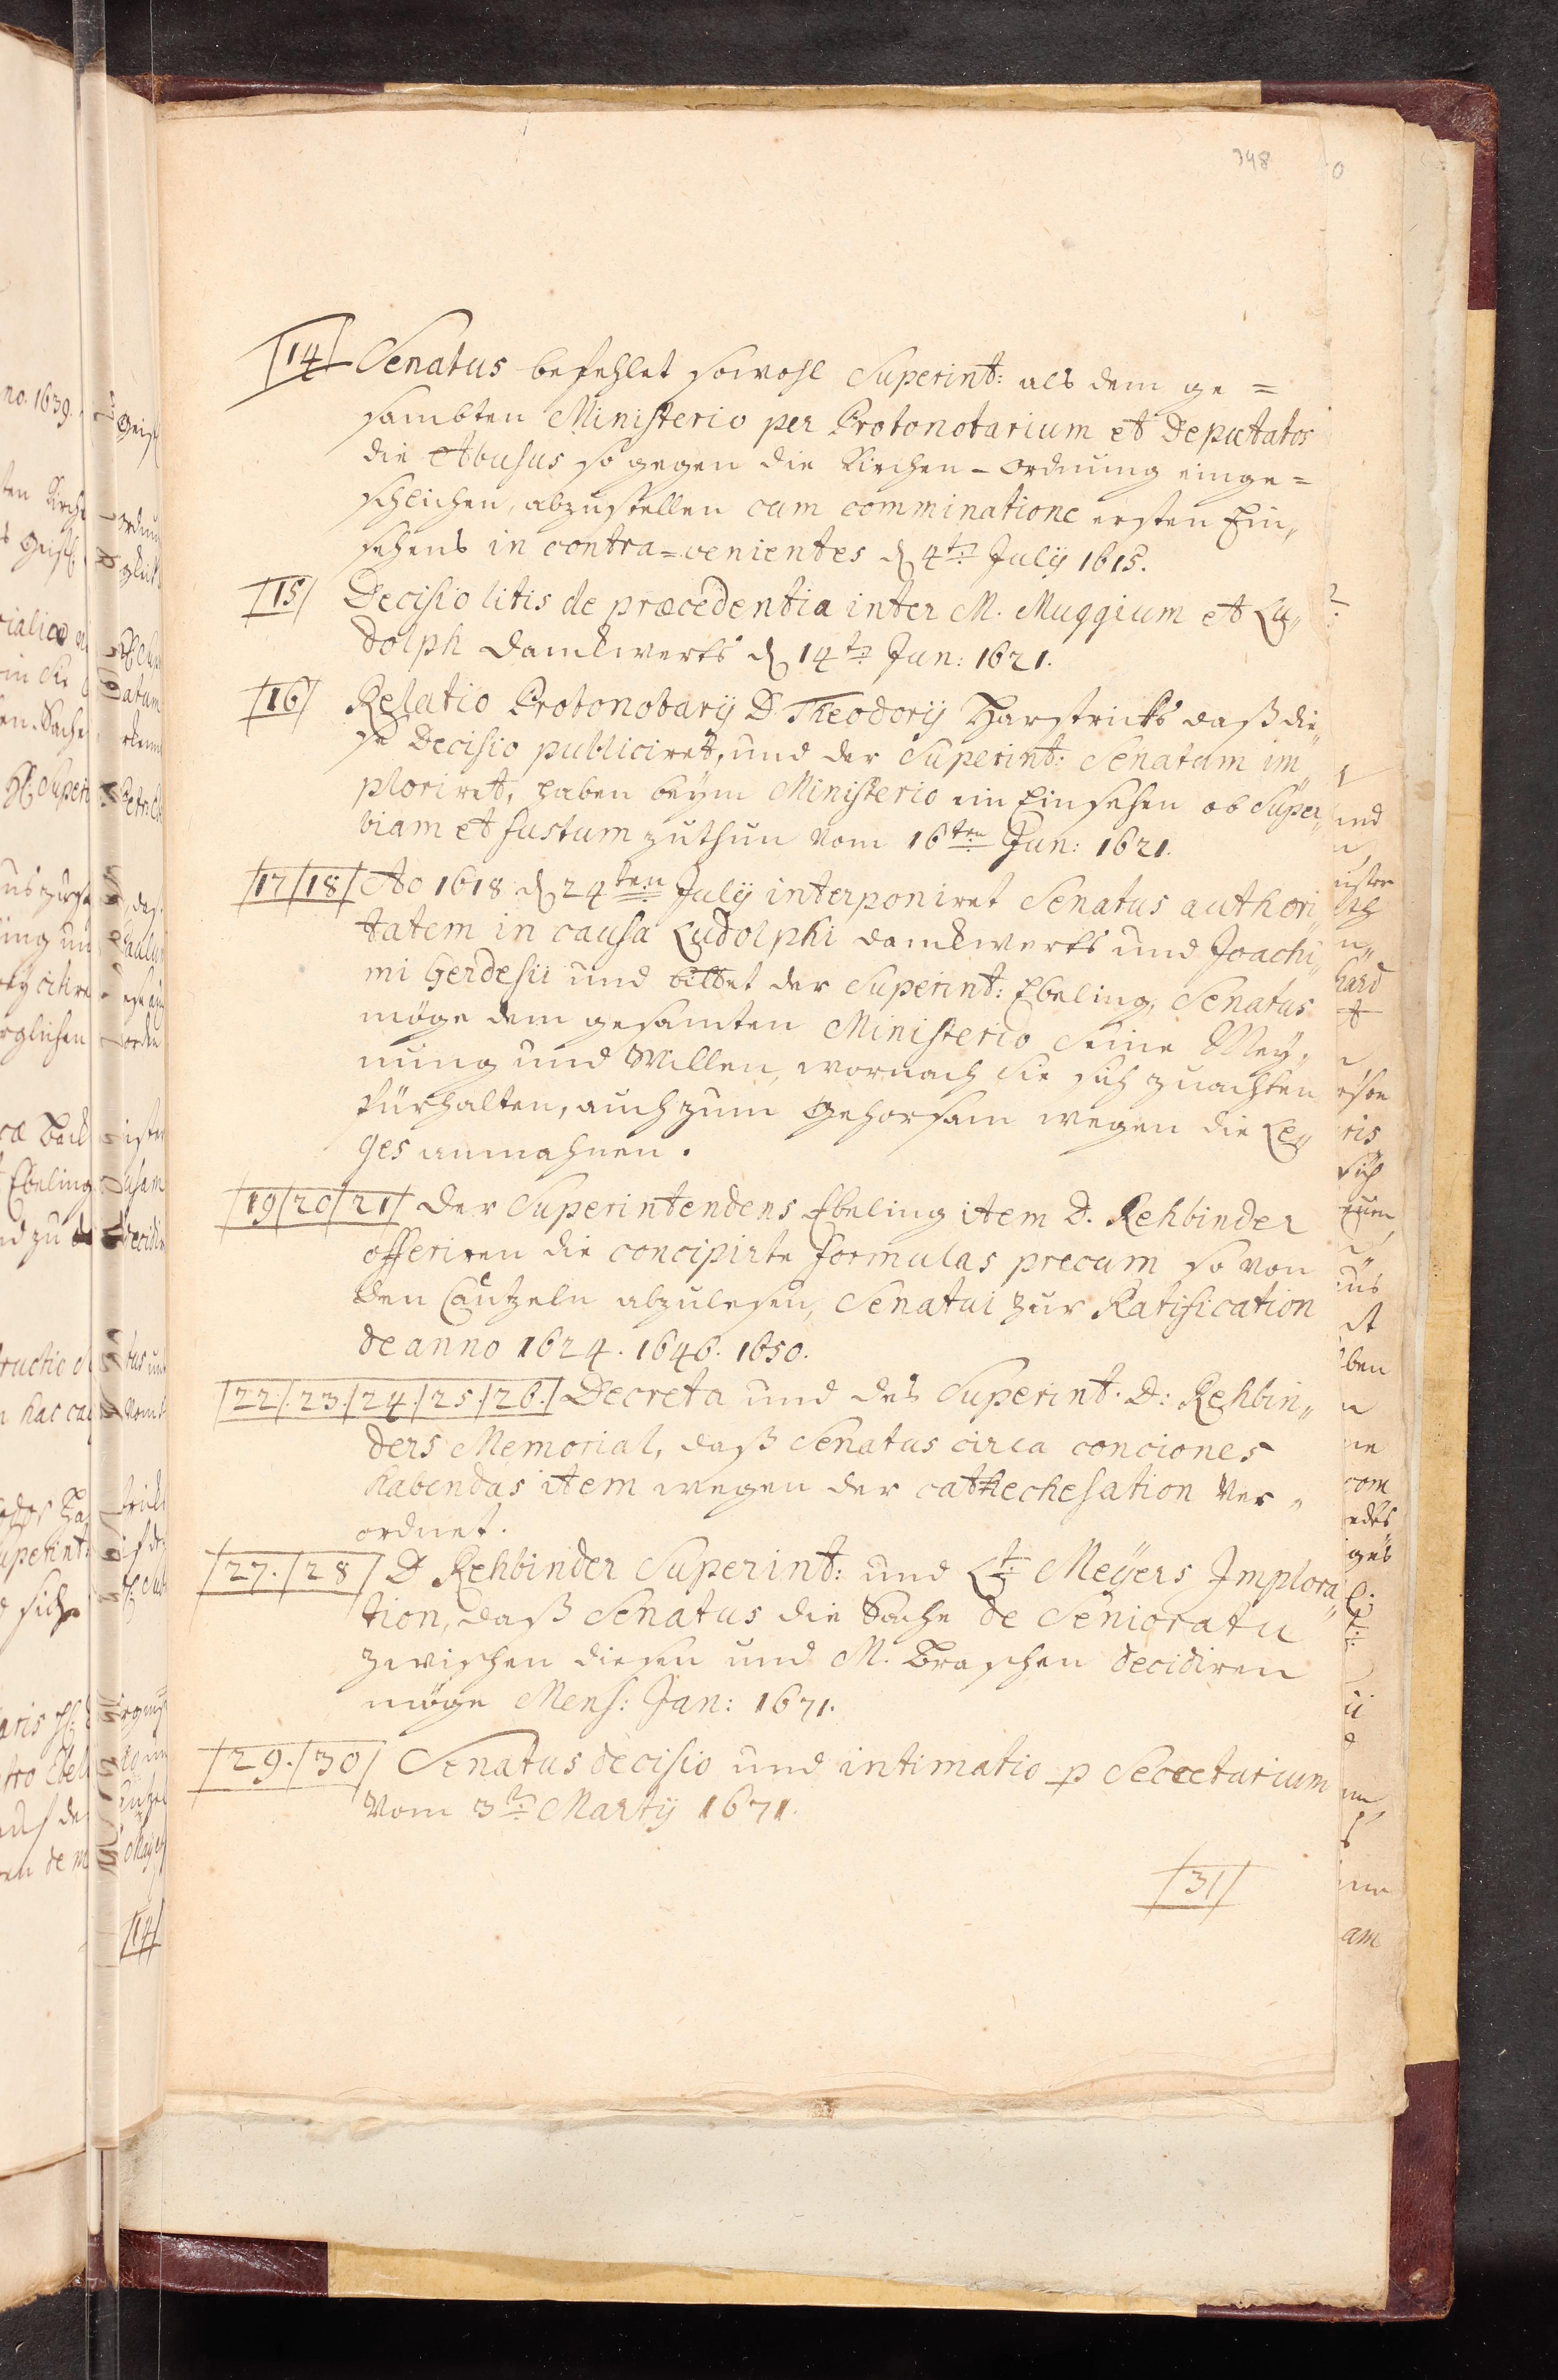 348
14 Senatus befehlet sowohl Superint: als dem ge=
sambten Ministerio per Protonotarium et Deputatos
die Abusus so gegen die Kirchen-Ordnung einge=
schlichen, abzustellen cum comminatione ersten Ein„
sehens in contra=venientes d 4ten Julÿ 1615.
15 Decisio litis de præcedentia inter M. Muggium et Lu„
dolph Danckwerts d 14ten Jun: 1621.
16 Relatio Protonotarÿ D. Theodorÿ Harstricks daß die„
se Decisio publiciret, und der Superint: Senatum im„
ploriret, haben beÿm Ministerio ein Einsehen ob Super„
biam et fustum zuthun vom 16ten Jun: 1621.
17 18 Ao 1618 d 24ten Julÿ interponiret Senatus authori„
tatem in causa Ludolphi Danckwerts und Joachi„
mi Gerdesii und bittet der Superint: Ebeling, Senatus
möge dem gesamten Ministerio seine Meÿ„
nung und Willen, wornach sie sich zuachten
fürhalten, auch zum Gehorsam wegen die Le„
ges anmahnen.
19 20 21 Der Superintendens Ebeling item D. Rehbinder
offeriren die concipirte formulas precum so von
den Cantzeln abzulesen, Senatui zur Ratification
de anno 1624. 1646. 1650.
22. 23. 24. 25. 26. Decreta und des Superint. D: Rehbin„
ders Memorial, daß Senatus circa conciones
habendas item wegen der cathechesation ver„
ordnet.
27. 28 D Rehbinder Superint: und Lt: Meÿers Implora„
tion, daß Senatus die Sache de Senioratu
zwischen diesen und M. Braschen decidiren
möge Mens: Jan: 1671.
29. 30 Senatus decisio und intimatio p Secretarium
vom 3ten Martÿ 1671.
31